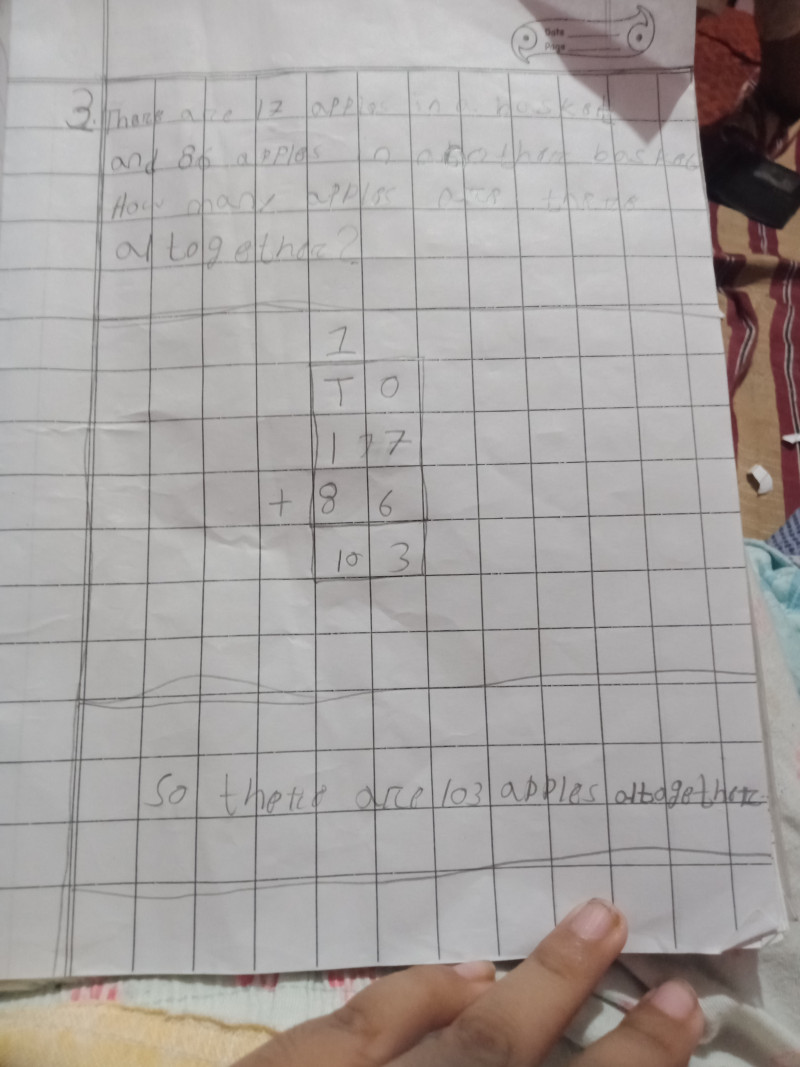 Date
Page
3. There are 17 apples in a basket
and 86 apples in another basket
How many apples are there
altogether?
1
T O
1 7 7
+ 8 6
10 3
So there are 103 apples altogether